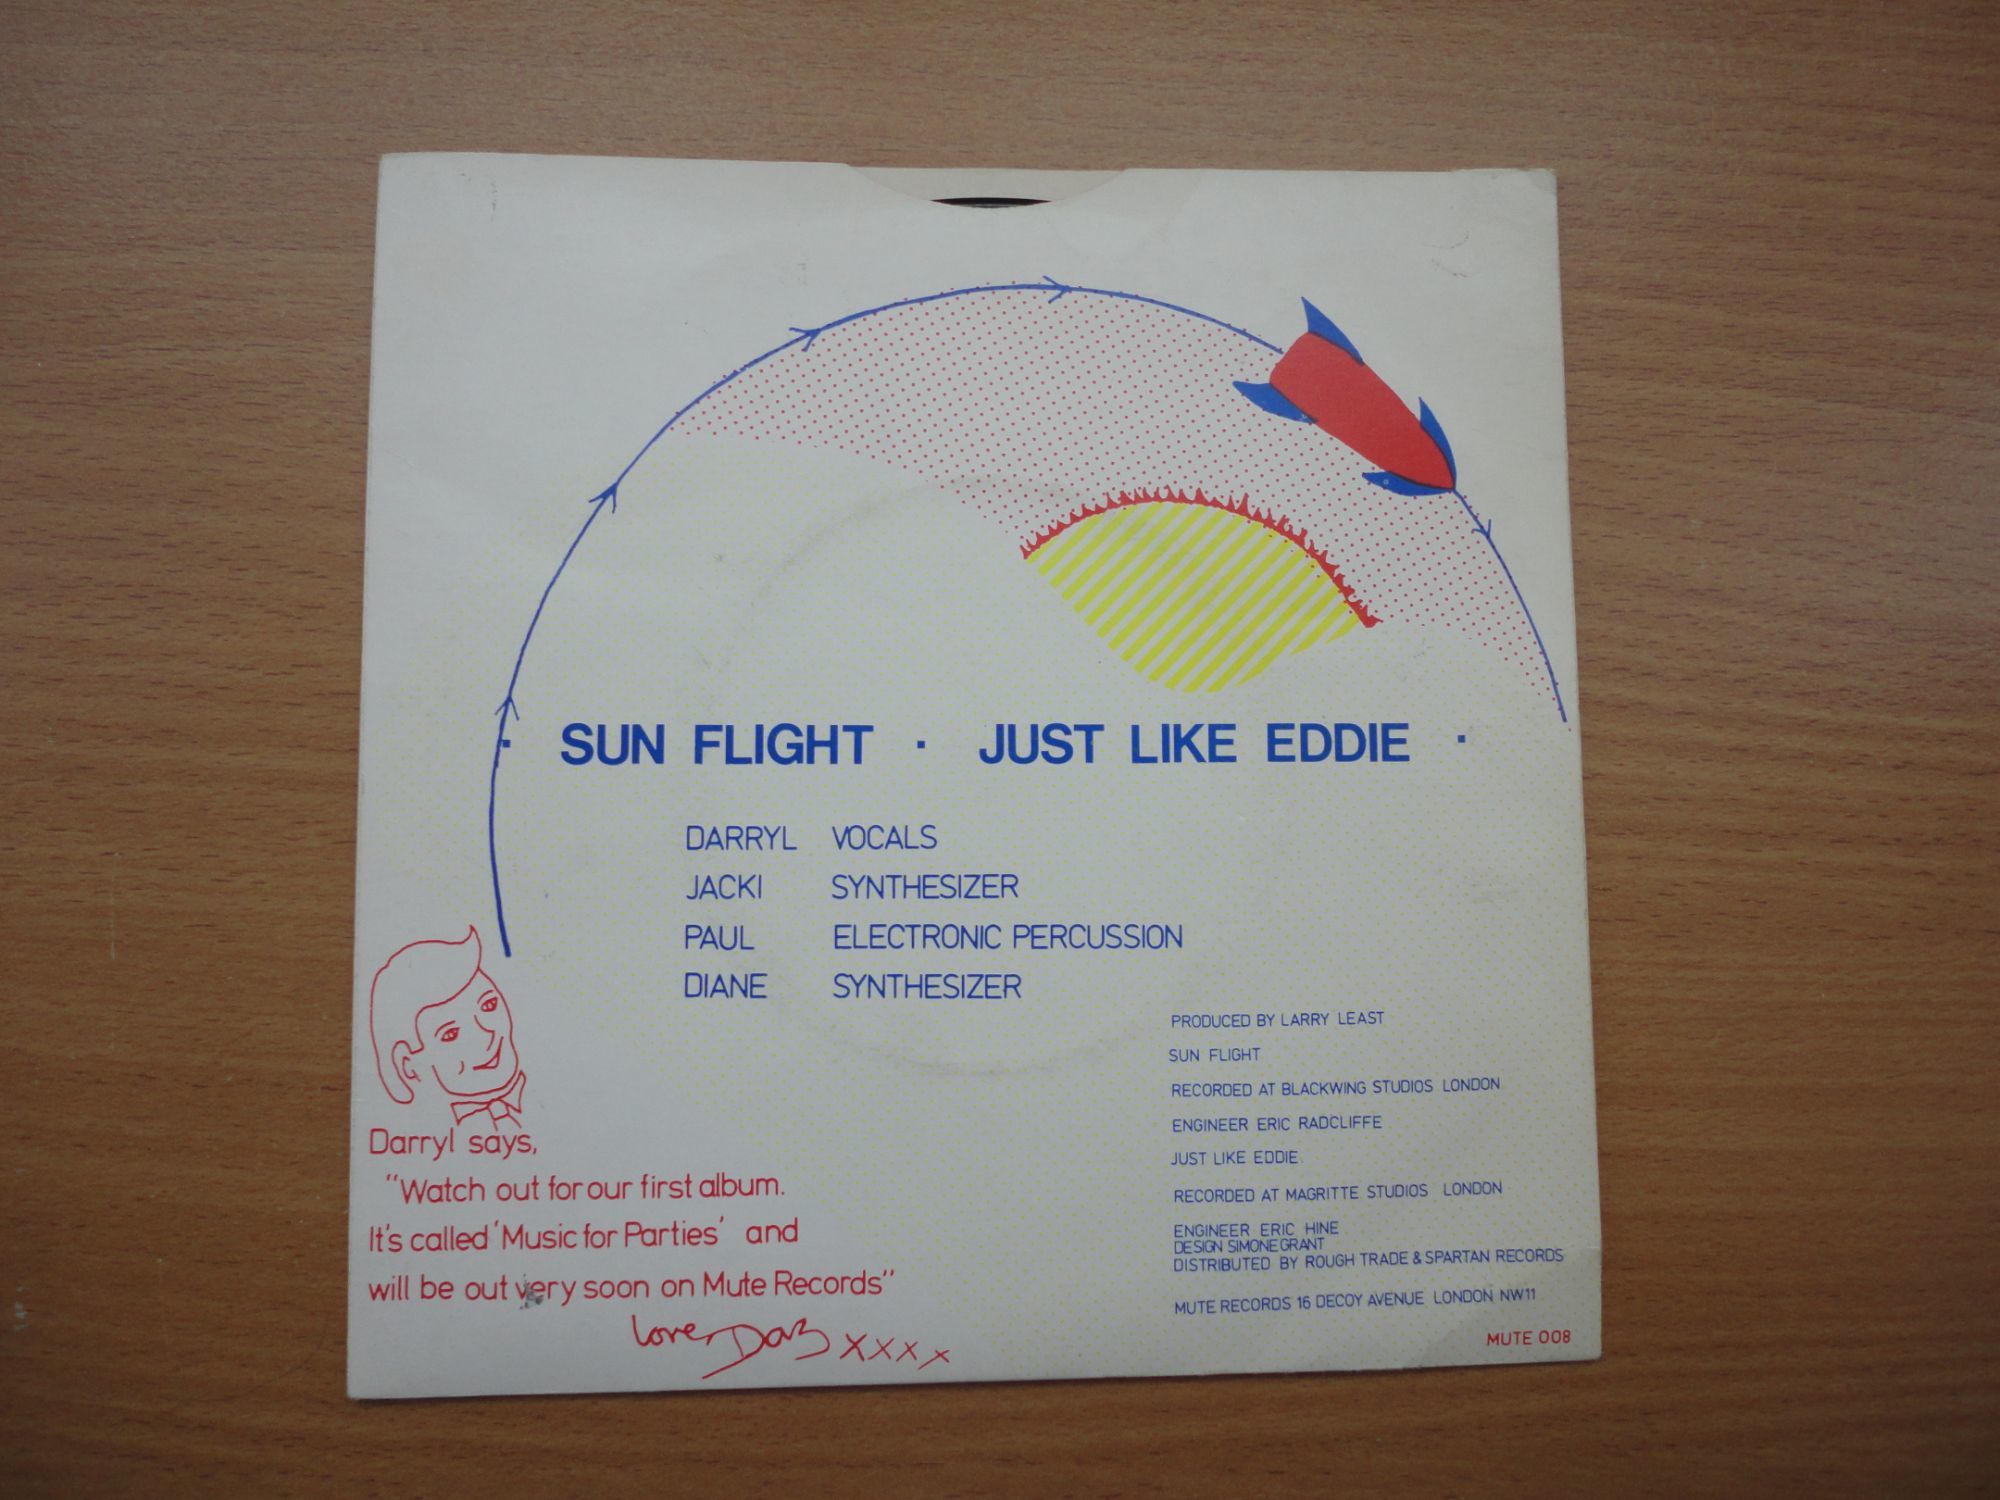 · SUN FLIGHT · JUST LIKE EDDIE ·
DARRYL VOCALS
JACKI SYNTHESIZER
PAUL ELECTRONIC PERCUSSION
DIANE SYNTHESIZER
PRODUCED BY LARRY LEAST
SUN FLIGHT
RECORDED AT BLACKWING STUDIOS LONDON
ENGINEER ERIC RADCLIFFE
JUST LIKE EDDIE
RECORDED AT MAGRITTE STUDIOS LONDON
ENGINEER ERIC HINE
DESIGN SIMONE GRANT
DISTRIBUTED BY ROUGH TRADE & SPARTAN RECORDS
MUTE RECORDS 16 DECOY AVENUE LONDON NW11
MUTE 008
Darryl says,
"Watch out for our first album.
It's called 'Music for Parties' and
will be out very soon on Mute Records"
love, Daz xxxx